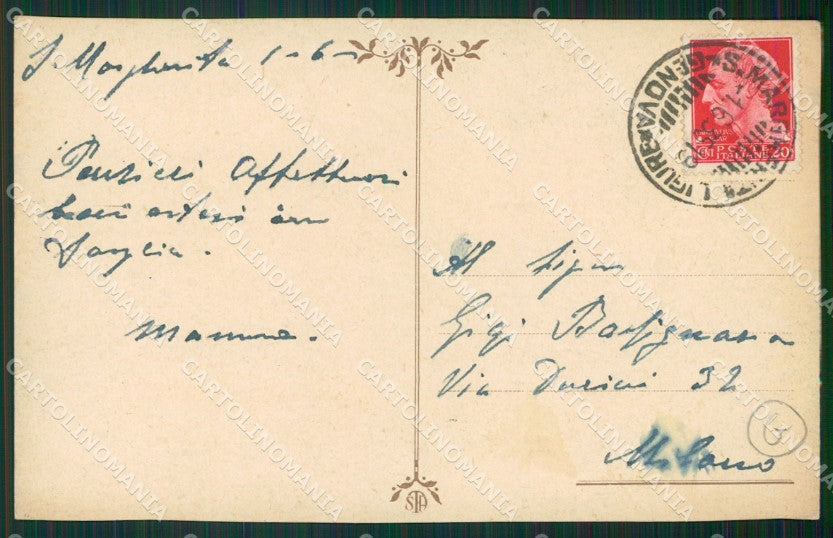 S. Margherita 1-6-
Pensieri Affettuosi
baci estesi in
famiglia.
mamma.
Al Signor
Gigi
Via Durini 32
Milano
S. MARGHERITA LIGURE
GENOVA
POSTE
ITALIANE
CENT 20
STA
CARTOLINOMANIA